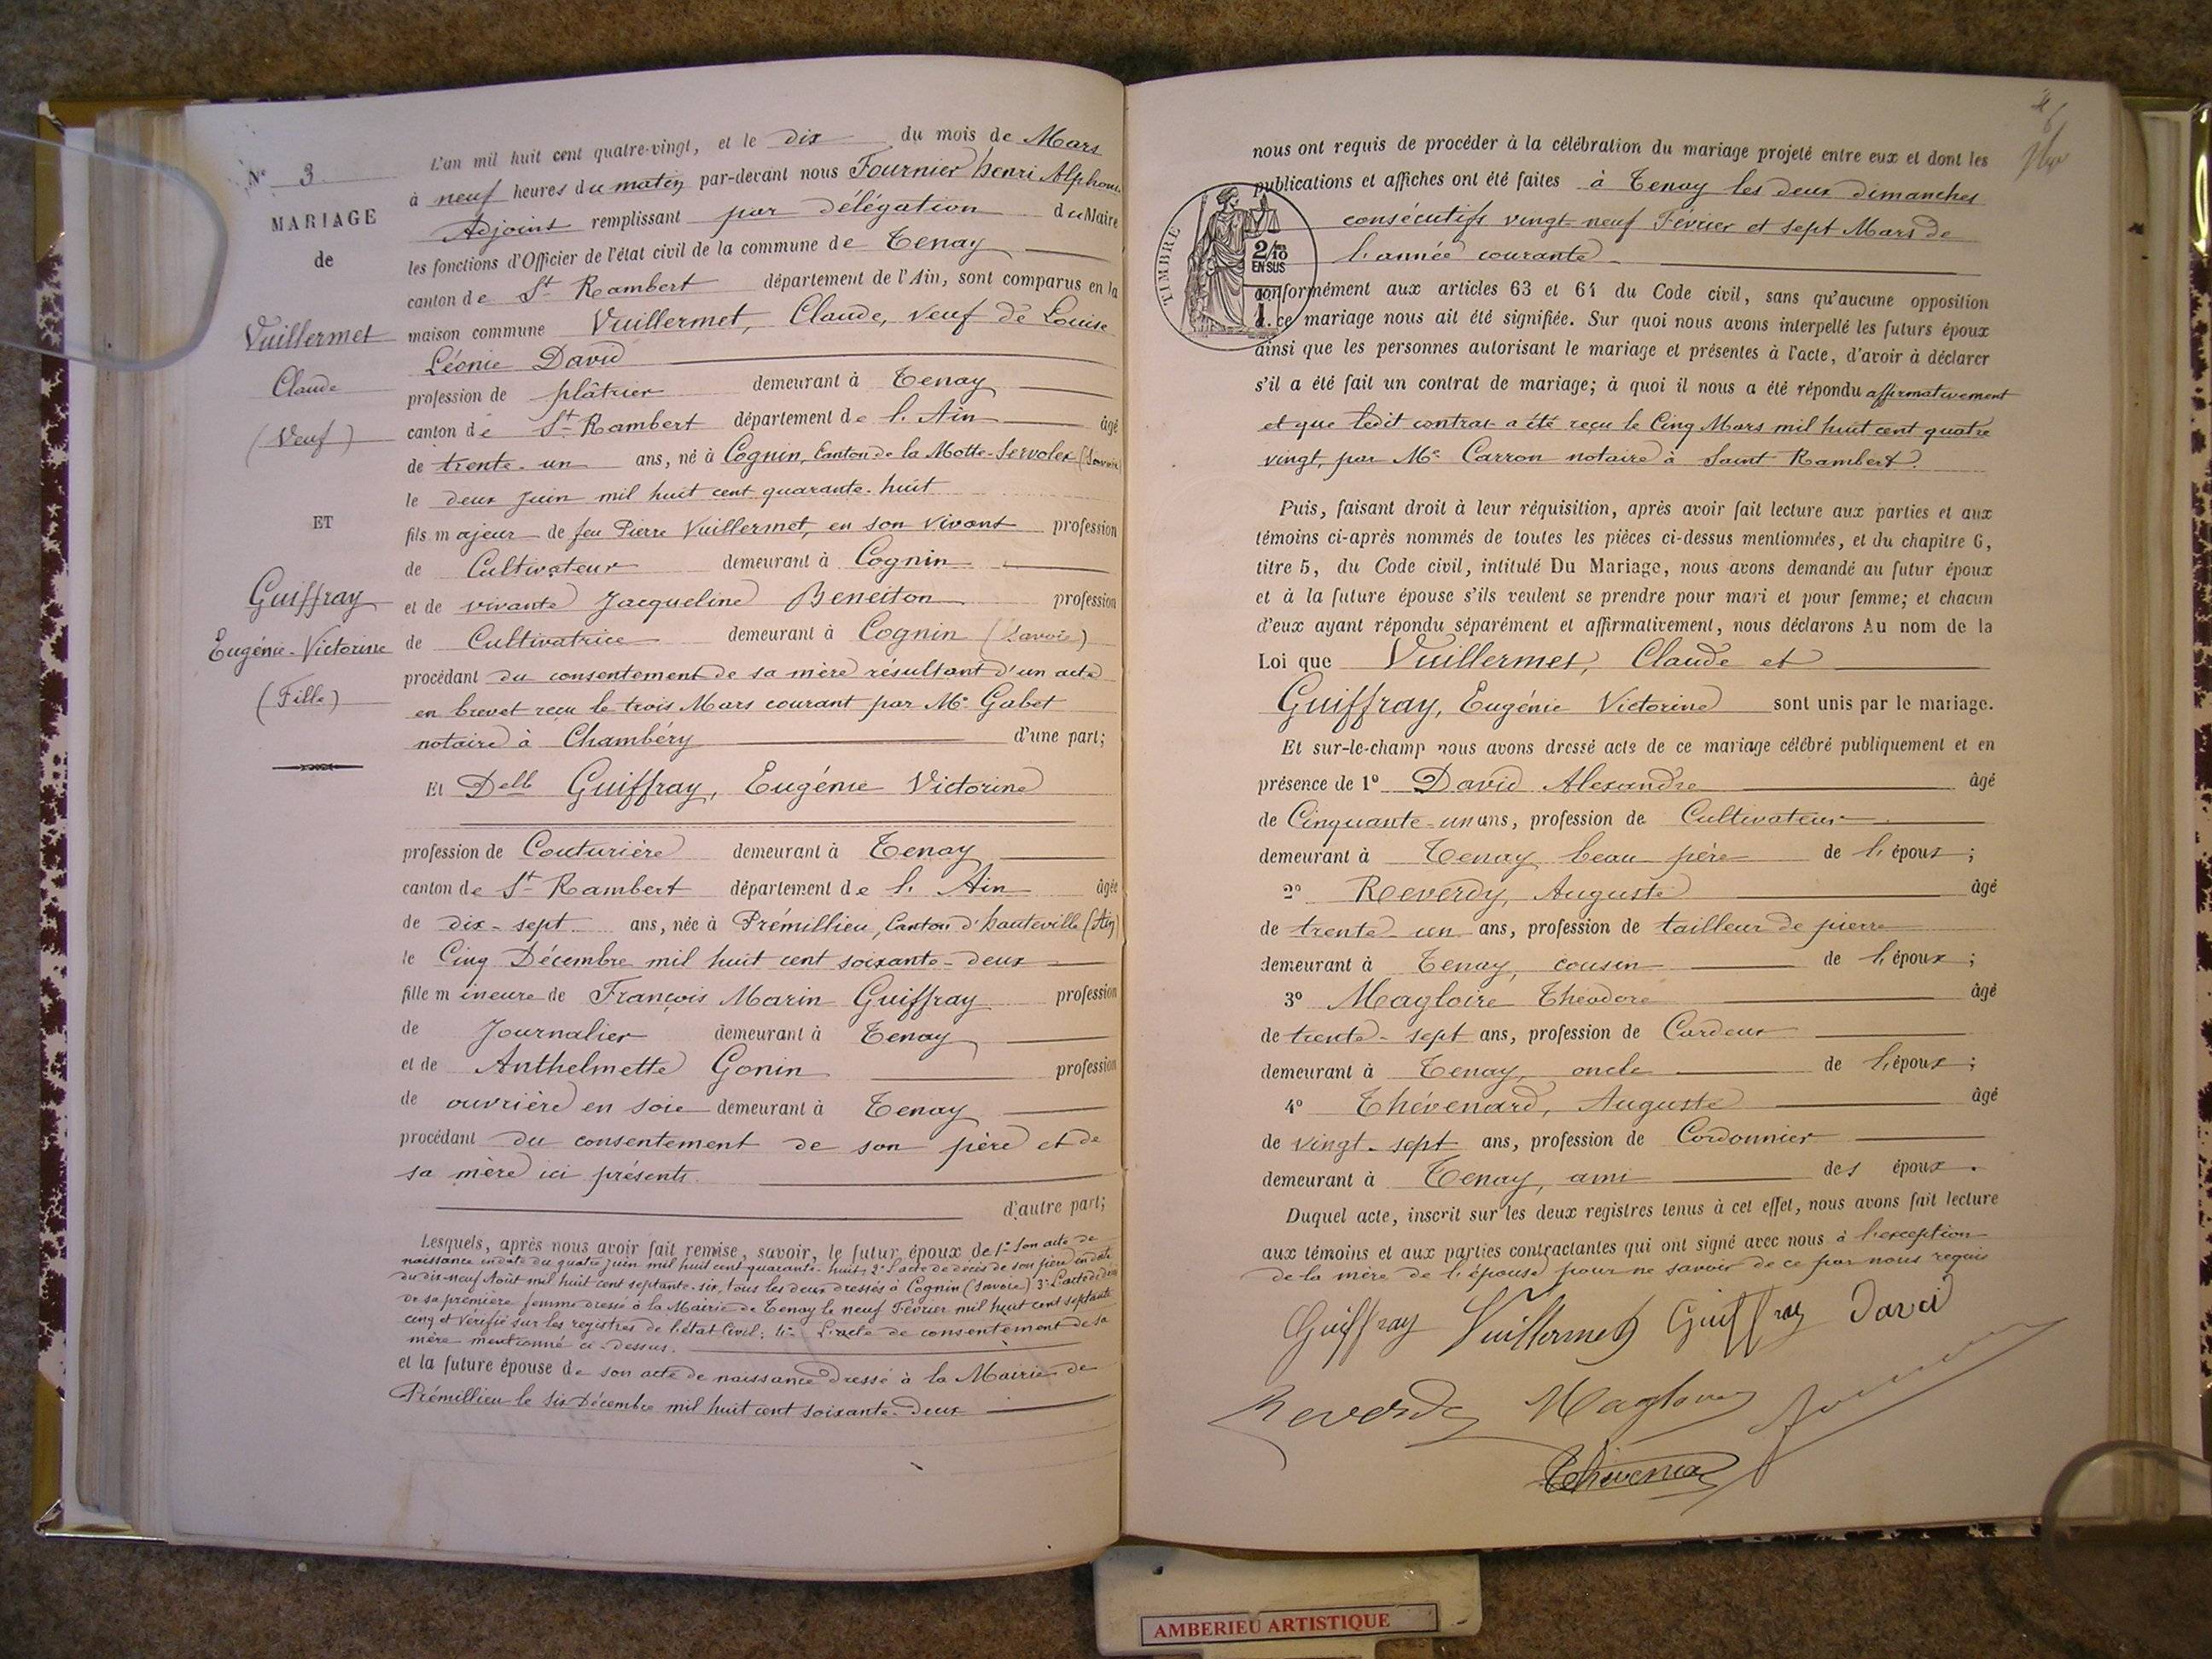 N° 3
MARIAGE
de
Vuillermet
Claude
(Veuf)
ET
Guiffray
Eugénie-Victorine
(Fille)
L'an mil huit cent quatre-vingt, et le dix du mois de Mars
à neuf heures du matin par-devant nous Fournier henri Alphonse
Adjoint remplissant par délégation du Maire
les fonctions d'Officier de l'état civil de la commune de Tenay
canton de St Rambert département de l'Ain, sont comparus en la
maison commune Vuillermet, Claude, veuf de Louise
Léonie David
profession de plâtrier demeurant à Tenay
canton de St Rambert département de l'Ain âgé
de trente-un ans, né à Cognin, Canton de la Motte-Servolex (Savoie)
le deux Juin mil huit cent quarante-huit
fils majeur de feu Pierre Vuillermet, en son vivant profession
de Cultivateur demeurant à Cognin
et de vivante Jacqueline Beneiton profession
de Cultivatrice demeurant à Cognin (Savoie)
procédant du consentement de sa mère résultant d'un acte
en brevet reçu le trois Mars courant par Me Gabet
notaire à Chambéry d'une part;
Et Delle Guiffray, Eugénie Victorine
profession de Couturière demeurant à Tenay
canton de St Rambert département de l'Ain âgée
de dix-sept ans, née à Prémillieu, Canton d'hauteville (Ain)
le Cinq Décembre mil huit cent soixante-deux
fille mineure de François Marin Guiffray profession
de Journalier demeurant à Tenay
et de Anthelmette Gonin profession
de ouvrière en soie demeurant à Tenay
procédant du consentement de son père et de
sa mère ici présents.
d'autre part;
Lesquels, après nous avoir fait remise, savoir, le futur époux de 1° Son acte de
naissance en date du quatre juin mil huit cent quarante-huit; 2° l'acte de décès de son père en date
du dix-neuf Août mil huit cent septante-six, tous les deux dressés à Cognin (Savoie) 3° L'acte de décès
de sa première femme dressé à la Mairie de Tenay le neuf Février mil huit cent septante
cinq et vérifié sur les registres de l'état Civil; 4° L'acte de consentement de sa
mère mentionné ci-dessus.
et la future épouse de son acte de naissance dressé à la Mairie de
Prémillieu le six Décembre mil huit cent soixante-deux
nous ont requis de procéder à la célébration du mariage projeté entre eux et dont les
publications et affiches ont été faites à Tenay les deux dimanches
consécutifs vingt-neuf Février et sept Mars de
l'année courante
TIMBRE
2/10
EN SUS
conformément aux articles 63 et 64 du Code civil, sans qu'aucune opposition
à ce mariage nous ait été signifiée. Sur quoi nous avons interpellé les futurs époux
ainsi que les personnes autorisant le mariage et présentes à l'acte, d'avoir à déclarer
s'il a été fait un contrat de mariage; à quoi il nous a été répondu affirmativement
et que ledit contrat a été reçu le Cinq Mars mil huit cent quatre
vingt, par Me Carron notaire à Saint Rambert.
Puis, faisant droit à leur réquisition, après avoir fait lecture aux parties et aux
témoins ci-après nommés de toutes les pièces ci-dessus mentionnées, et du chapitre 6,
titre 5, du Code civil, intitulé Du Mariage, nous avons demandé au futur époux
et à la future épouse s'ils veulent se prendre pour mari et pour femme; et chacun
d'eux ayant répondu séparément et affirmativement, nous déclarons Au nom de la
Loi que Vuillermet, Claude et
Guiffray, Eugénie Victorine sont unis par le mariage.
Et sur-le-champ nous avons dressé acte de ce mariage célébré publiquement et en
présence de 1° David Alexandre âgé
de Cinquante-un ans, profession de Cultivateur
demeurant à Tenay beau père de l'époux;
2° Reverdy, Auguste âgé
de trente-un ans, profession de tailleur de pierre
demeurant à Tenay, cousin de l'époux;
3° Magloire Théodore âgé
de trente-sept ans, profession de Cardeur
demeurant à Tenay, oncle de l'époux;
4° Thévenard, Auguste âgé
de vingt-sept ans, profession de Cordonnier
demeurant à Tenay, ami des époux.
Duquel acte, inscrit sur les deux registres tenus à cet effet, nous avons fait lecture
aux témoins et aux parties contractantes qui ont signé avec nous à l'exception
de la mère de l'épouse pour ne savoir de ce par nous requis
Guiffray Vuillermet Guiffray David
Reverdy Magloire
Thévenard
AMBERIEU ARTISTIQUE